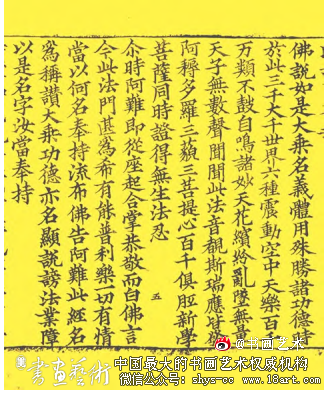 佛說如是大乘名義體用殊勝諸功德
於此三千大千世界六種震動空中天樂百
万類不鼓自鳴諸妙天花繽紛亂墜無量
天子無數聲聞聞此法音覩斯瑞應
阿耨多羅三藐三菩提心百千俱胝新學
菩薩同時證得無生法忍
五
尒時阿難即從座起合掌恭敬而白佛言
今此法門甚爲希有能普利樂一切有情
當以何名奉持流布佛告阿難此經名
爲稱讚大乘功德亦名顯說謗法業障
以是名字汝當奉持
@书画艺术
書畫藝術
中国最大的书画艺术权威机构
微信公众号：shys-cc www.18art.com